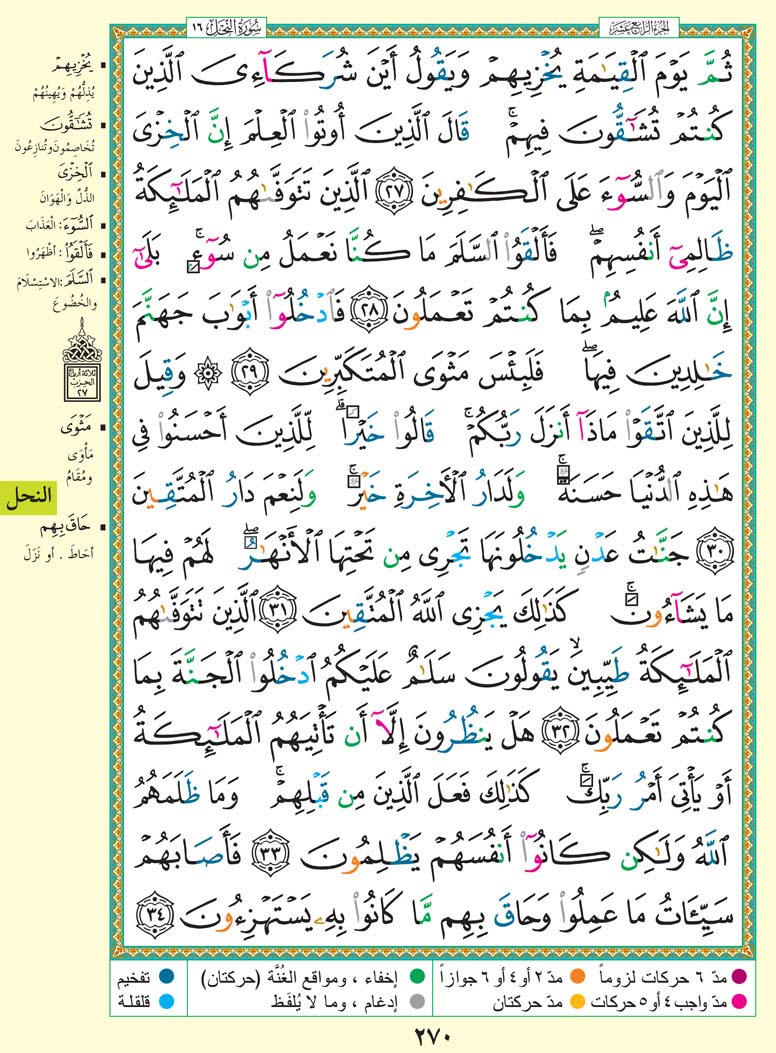 الجزء الرابع عشر
سورة النحل ١٦
ثُمَّ يَوْمَ ٱلْقِيَٰمَةِ يُخْزِيهِمْ وَيَقُولُ أَيْنَ شُرَكَآءِىَ ٱلَّذِينَ
كُنتُمْ تُشَٰٓقُّونَ فِيهِمْ ۚ قَالَ ٱلَّذِينَ أُوتُوا۟ ٱلْعِلْمَ إِنَّ ٱلْخِزْىَ
ٱلْيَوْمَ وَٱلسُّوٓءَ عَلَى ٱلْكَٰفِرِينَ ٢٧ ٱلَّذِينَ تَتَوَفَّىٰهُمُ ٱلْمَلَٰٓئِكَةُ
ظَالِمِىٓ أَنفُسِهِمْ ۖ فَأَلْقَوُا۟ ٱلسَّلَمَ مَا كُنَّا نَعْمَلُ مِن سُوٓءٍۭ ۚ بَلَىٰٓ
إِنَّ ٱللَّهَ عَلِيمٌۢ بِمَا كُنتُمْ تَعْمَلُونَ ٢٨ فَٱدْخُلُوٓا۟ أَبْوَٰبَ جَهَنَّمَ
خَٰلِدِينَ فِيهَا ۖ فَلَبِئْسَ مَثْوَى ٱلْمُتَكَبِّرِينَ ٢٩ ۞ وَقِيلَ
لِلَّذِينَ ٱتَّقَوْا۟ مَاذَآ أَنزَلَ رَبُّكُمْ ۚ قَالُوا۟ خَيْرًا ۗ لِّلَّذِينَ أَحْسَنُوا۟ فِى
هَٰذِهِ ٱلدُّنْيَا حَسَنَةٌ ۚ وَلَدَارُ ٱلْءَاخِرَةِ خَيْرٌ ۚ وَلَنِعْمَ دَارُ ٱلْمُتَّقِينَ
٣٠ جَنَّٰتُ عَدْنٍ يَدْخُلُونَهَا تَجْرِى مِن تَحْتِهَا ٱلْأَنْهَٰرُ ۖ لَهُمْ فِيهَا
مَا يَشَآءُونَ ۚ كَذَٰلِكَ يَجْزِى ٱللَّهُ ٱلْمُتَّقِينَ ٣١ ٱلَّذِينَ تَتَوَفَّىٰهُمُ
ٱلْمَلَٰٓئِكَةُ طَيِّبِينَ ۙ يَقُولُونَ سَلَٰمٌ عَلَيْكُمُ ٱدْخُلُوا۟ ٱلْجَنَّةَ بِمَا
كُنتُمْ تَعْمَلُونَ ٣٢ هَلْ يَنظُرُونَ إِلَّآ أَن تَأْتِيَهُمُ ٱلْمَلَٰٓئِكَةُ
أَوْ يَأْتِىَ أَمْرُ رَبِّكَ ۚ كَذَٰلِكَ فَعَلَ ٱلَّذِينَ مِن قَبْلِهِمْ ۚ وَمَا ظَلَمَهُمُ
ٱللَّهُ وَلَٰكِن كَانُوٓا۟ أَنفُسَهُمْ يَظْلِمُونَ ٣٣ فَأَصَابَهُمْ
سَيِّـَٔاتُ مَا عَمِلُوا۟ وَحَاقَ بِهِم مَّا كَانُوا۟ بِهِۦ يَسْتَهْزِءُونَ ٣٤
▪ يُخْزِيهِمْ
يُذِلُّهُمْ وَيُهِينُهُمْ
▪ تُشَٰٓقُّونَ
تُخَاصِمُونَ وتُنازِعُونَ
▪ ٱلْخِزْىَ
الذُّلَّ وَالْهَوَانَ
▪ ٱلسُّوٓءَ: الْعَذَابَ
▪ فَأَلْقَوُا۟: أظْهَرُوا
▪ ٱلسَّلَمَ: الاسْتِسْلَامَ
والخُضُوعَ
ثلاثة أرباع
الحزب
٢٧
▪ مَثْوَى
مَأوَى
ومُقَامُ
النحل
▪ حَاقَ بِهِم
أحَاطَ . أو نَزَلَ
مدّ ٦ حركات لزوماً
مدّ ٢ أو ٤ أو ٦ جوازاً
إخفاء ، ومواقع الغُنَّة (حركتان)
تفخيم
مدّ واجب ٤ أو ٥ حركات
مدّ حركتان
إدغام ، وما لا يُلفَظ
قلقلة
٢٧٠